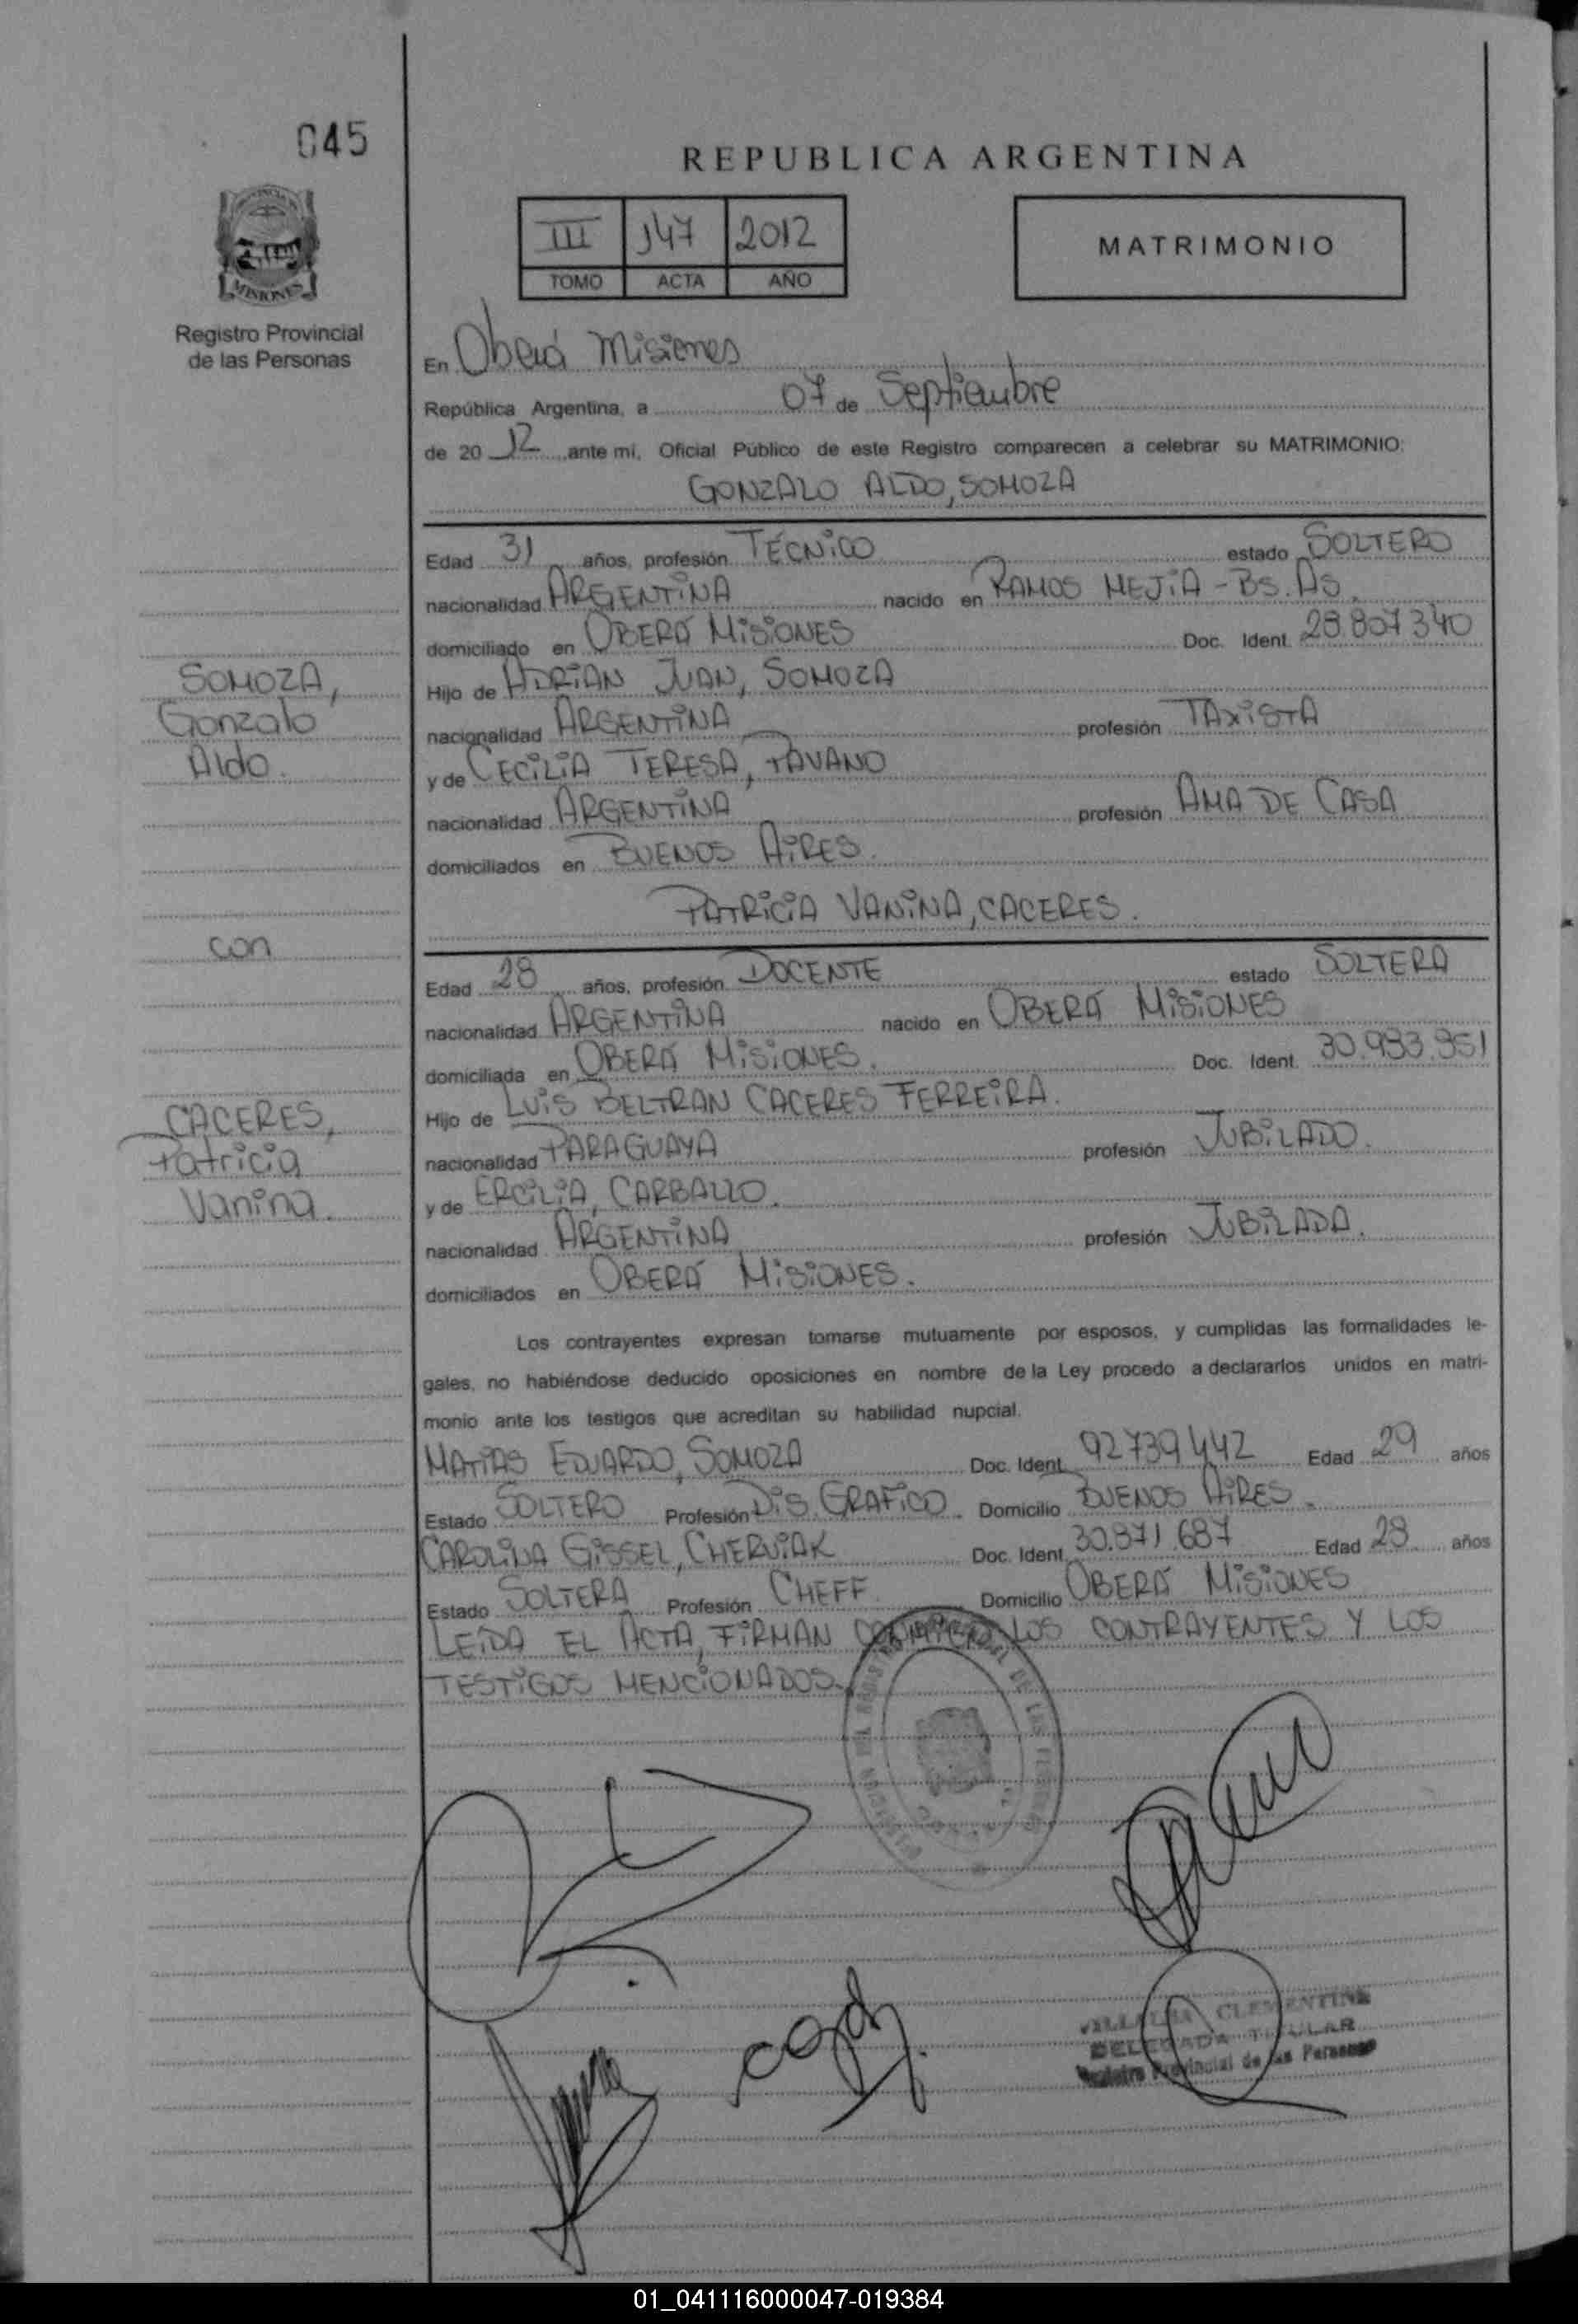 045
REPUBLICA ARGENTINA
III 147 2012
TOMO ACTA AÑO
MATRIMONIO
MISIONES
Registro Provincial
de las Personas
En Oberá Misiones
República Argentina, a 07 de Septiembre
de 20 12 ante mi, Oficial Público de este Registro comparecen a celebrar su MATRIMONIO:
GONZALO ALDO, SOMOZA
Edad 31 años, profesión TÉCNICO estado SOLTERO
nacionalidad ARGENTINA nacido en RAMOS MEJIA - BS. AS.
domiciliado en OBERÁ MISIONES Doc. Ident. 28.807340
Hijo de ADRIAN JUAN, SOMOZA
nacionalidad ARGENTINA profesión TAXISTA
y de CECILIA TERESA, PAVANO
nacionalidad ARGENTINA profesión AMA DE CASA
domiciliados en BUENOS AIRES.
SOMOZA,
Gonzalo
Aldo.
con
CACERES,
Patricia
Vanina.
PATRICIA VANINA, CACERES.
Edad 28 años, profesión DOCENTE estado SOLTERA
nacionalidad ARGENTINA nacido en OBERÁ MISIONES
domiciliada en OBERÁ MISIONES. Doc. Ident. 30.983.951
Hijo de LUIS BELTRAN CACERES FERREIRA.
nacionalidad PARAGUAYA profesión JUBILADO.
y de ERCILIA, CARBALLO.
nacionalidad ARGENTINA profesión JUBILADA.
domiciliados en OBERÁ MISIONES.
Los contrayentes expresan tomarse mutuamente por esposos, y cumplidas las formalidades le-
gales, no habiéndose deducido oposiciones en nombre de la Ley procedo a declararlos unidos en matri-
monio ante los testigos que acreditan su habilidad nupcial.
MATIAS EDUARDO, SOMOZA Doc. Ident. 92739442 Edad 29 años
Estado SOLTERO Profesión DIS. GRAFICO. Domicilio BUENOS AIRES.
CAROLINA GISSEL, CHERNIAK Doc. Ident. 30.871.687 Edad 28 años
Estado SOLTERA Profesión CHEFF. Domicilio OBERÁ MISIONES
LEIDA EL ACTA, FIRMAN CONMIGO LOS CONTRAYENTES Y LOS
TESTIGOS MENCIONADOS.
VILLALBA CLEMENTINE
DELEGADA TITULAR
Registro Provincial de las Personas
01_041116000047-019384